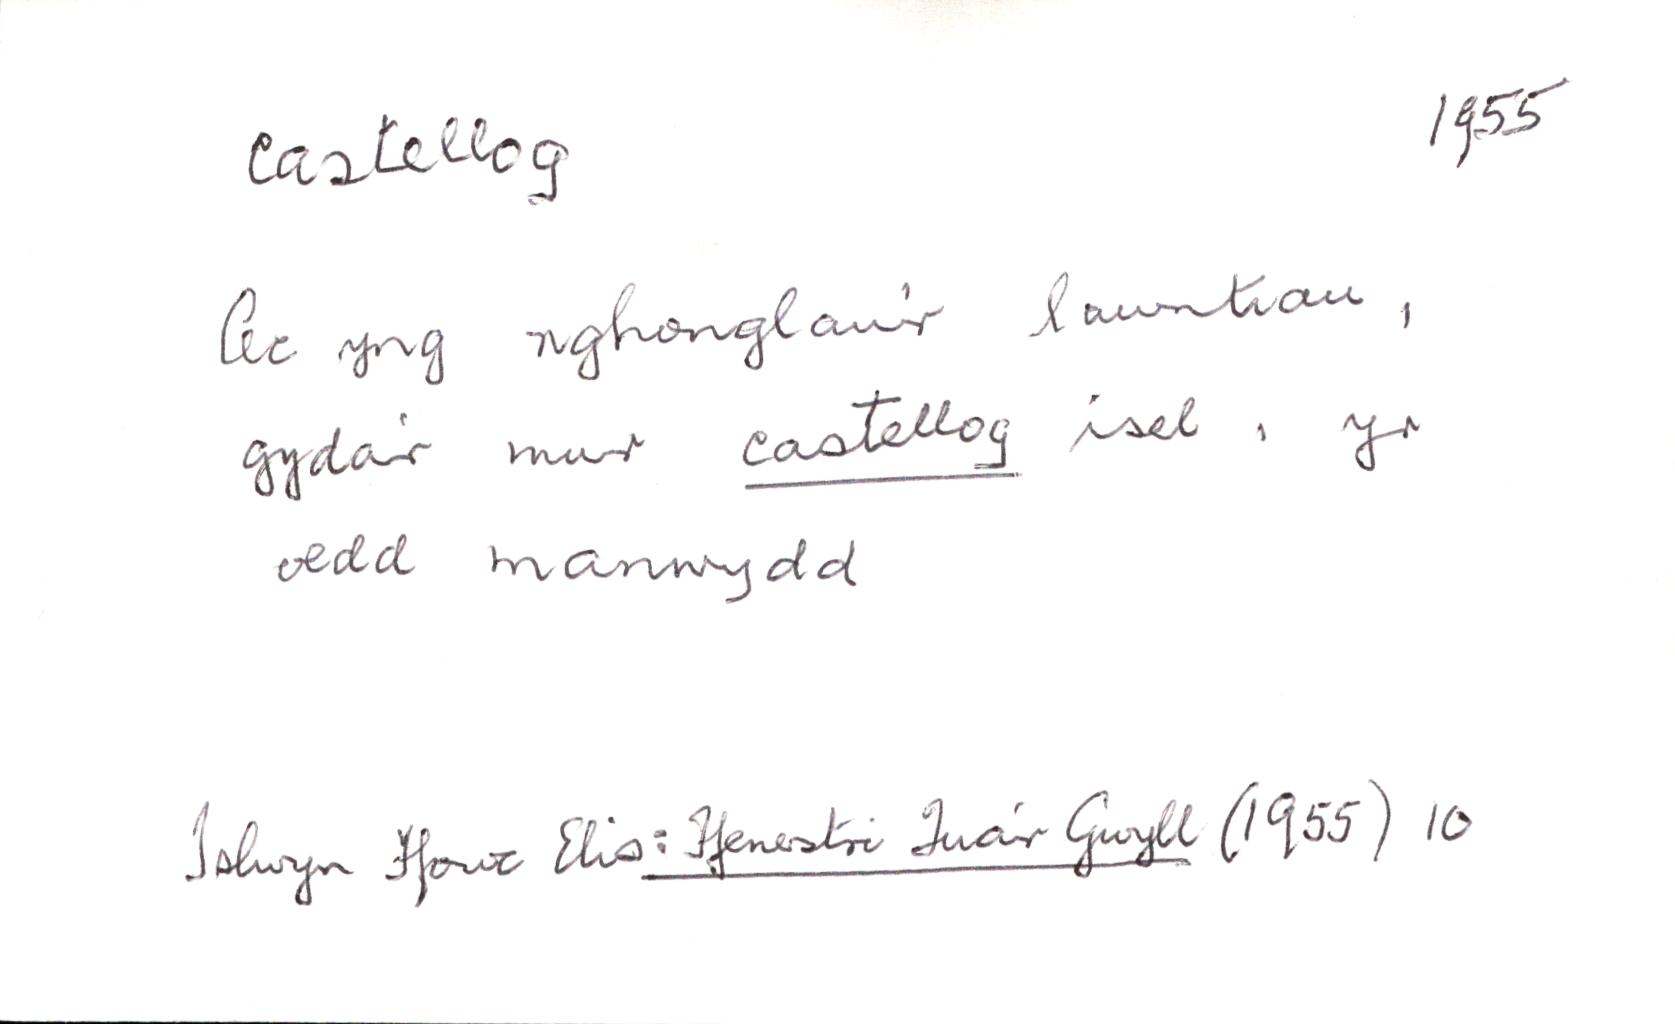 castellog 1955
Ac yng nghonglau'r lawntiau,
gyda'r mur castellog isel, yr
oedd manwydd
Islwyn Ffowc Elis: Ffenestri Tua'r Gwyll (1955) 10